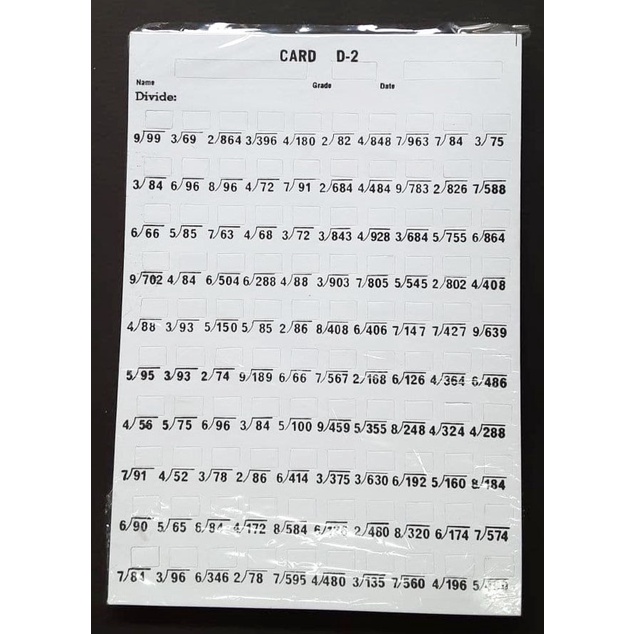 CARD D-2
Name Grade Date
Divide:
9/99 3/69 2/864 3/396 4/180 2/82 4/848 7/963 7/84 3/75
3/84 6/96 8/96 4/72 7/91 2/684 4/484 9/783 2/826 7/588
6/66 5/85 7/63 4/68 3/72 3/843 4/928 3/684 5/755 6/864
9/702 4/84 6/504 6/288 4/88 3/903 7/805 5/545 2/802 4/408
4/88 3/93 5/150 5/85 2/86 8/408 6/406 7/147 7/427 9/639
5/95 3/93 2/74 9/189 6/66 7/567 2/168 6/126 4/364 6/486
4/56 5/75 6/96 3/84 5/100 9/459 5/355 8/248 4/324 4/288
7/91 4/52 3/78 2/86 6/414 3/375 3/630 6/192 5/160 8/184
6/90 5/65 6/84 4/172 8/584 2/480 8/320 6/174 7/574
7/84 3/96 6/346 2/78 7/595 4/480 3/135 7/560 4/196